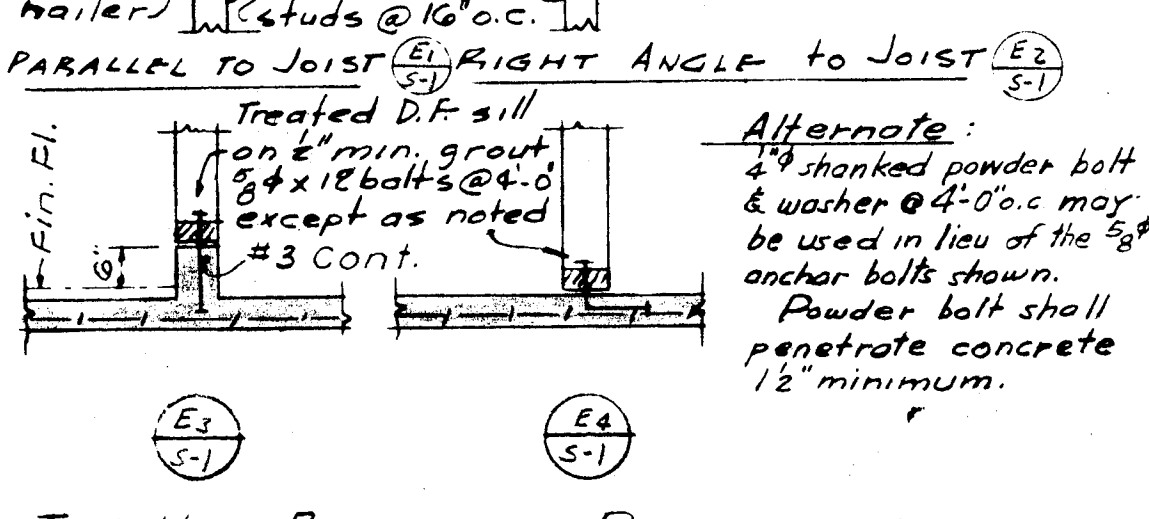 nailer)
studs @ 16" o.c.
PARALLEL TO JOIST E1 S-1
RIGHT ANGLE to JOIST E2 S-1
Fin. Fl.
6"
Treated D.F. sill
on ½" min. grout
⅝ϕ x 12 bolts @ 4'-0
except as noted
#3 Cont.
Alternate:
¼"ϕ shanked powder bolt
& washer @ 4'-0" o.c may
be used in lieu of the ⅝ϕ
anchor bolts shown.
Powder bolt shall
penetrate concrete
1½" minimum.
E3
S-1
E4
S-1